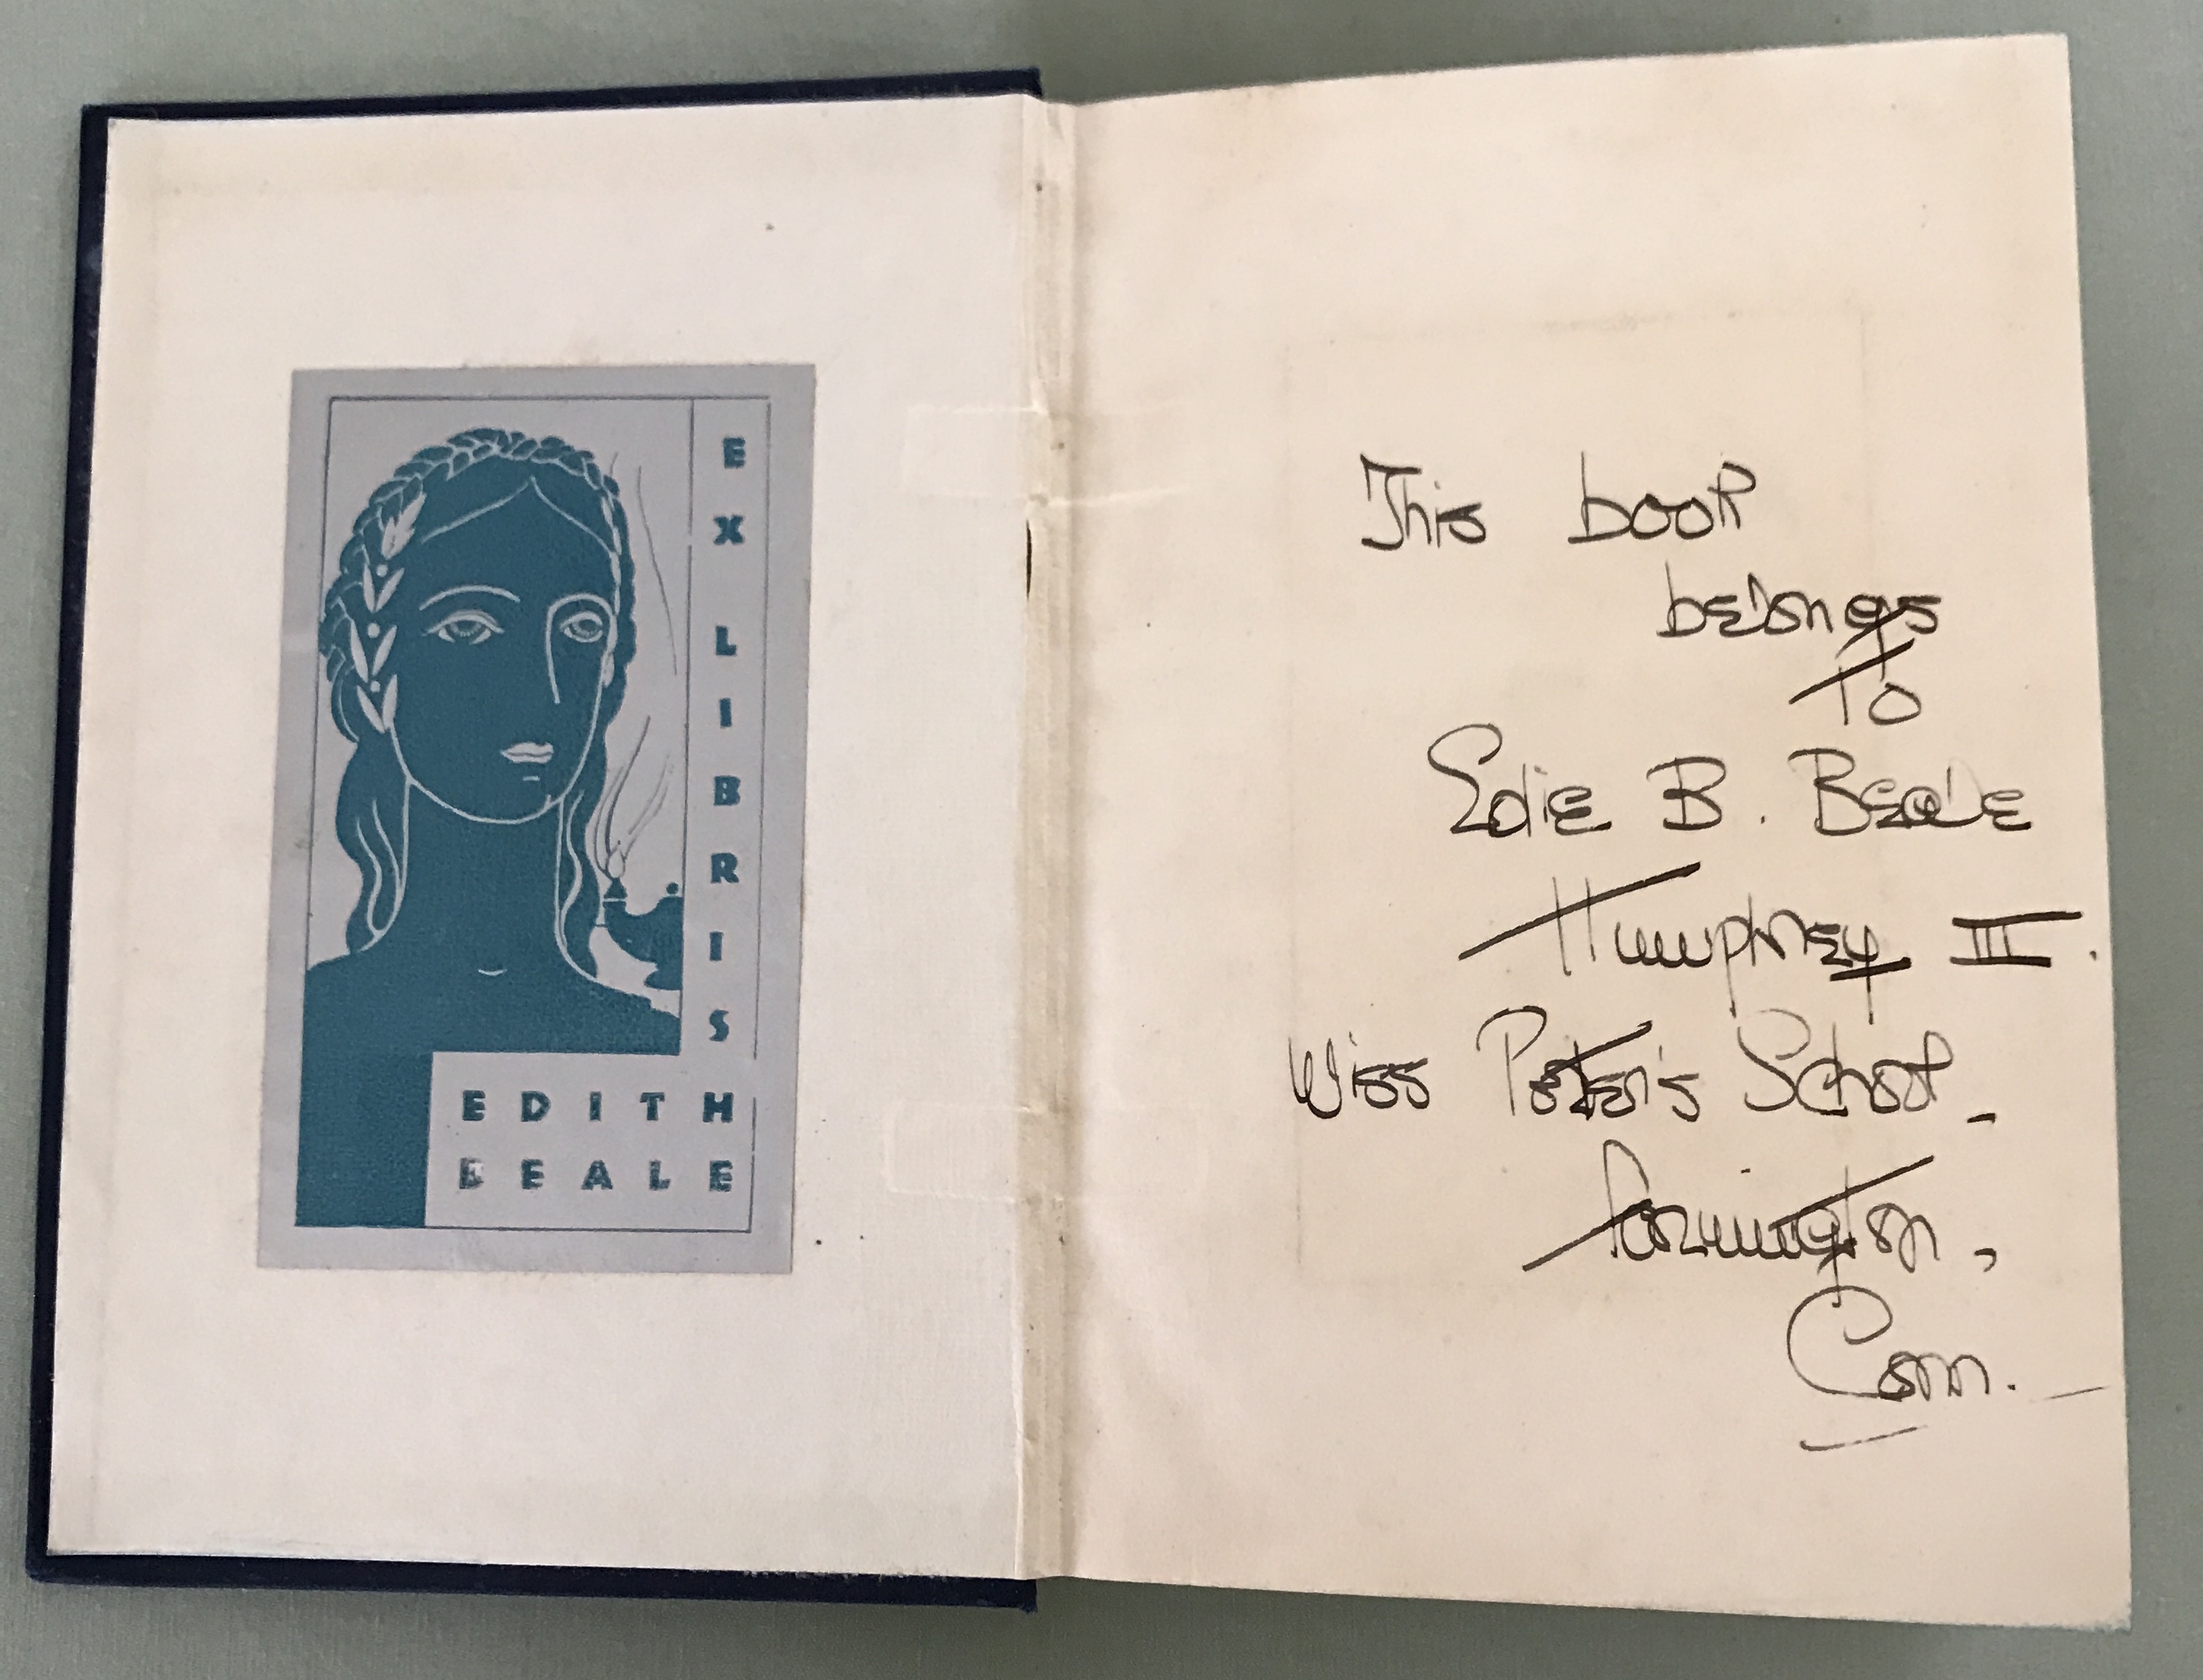 EX LIBRIS
EDITH
BEALE
This book
belongs
to
Edie B. Beale
Humphrey III.
Miss Porter's School_
Farmington,
Conn.